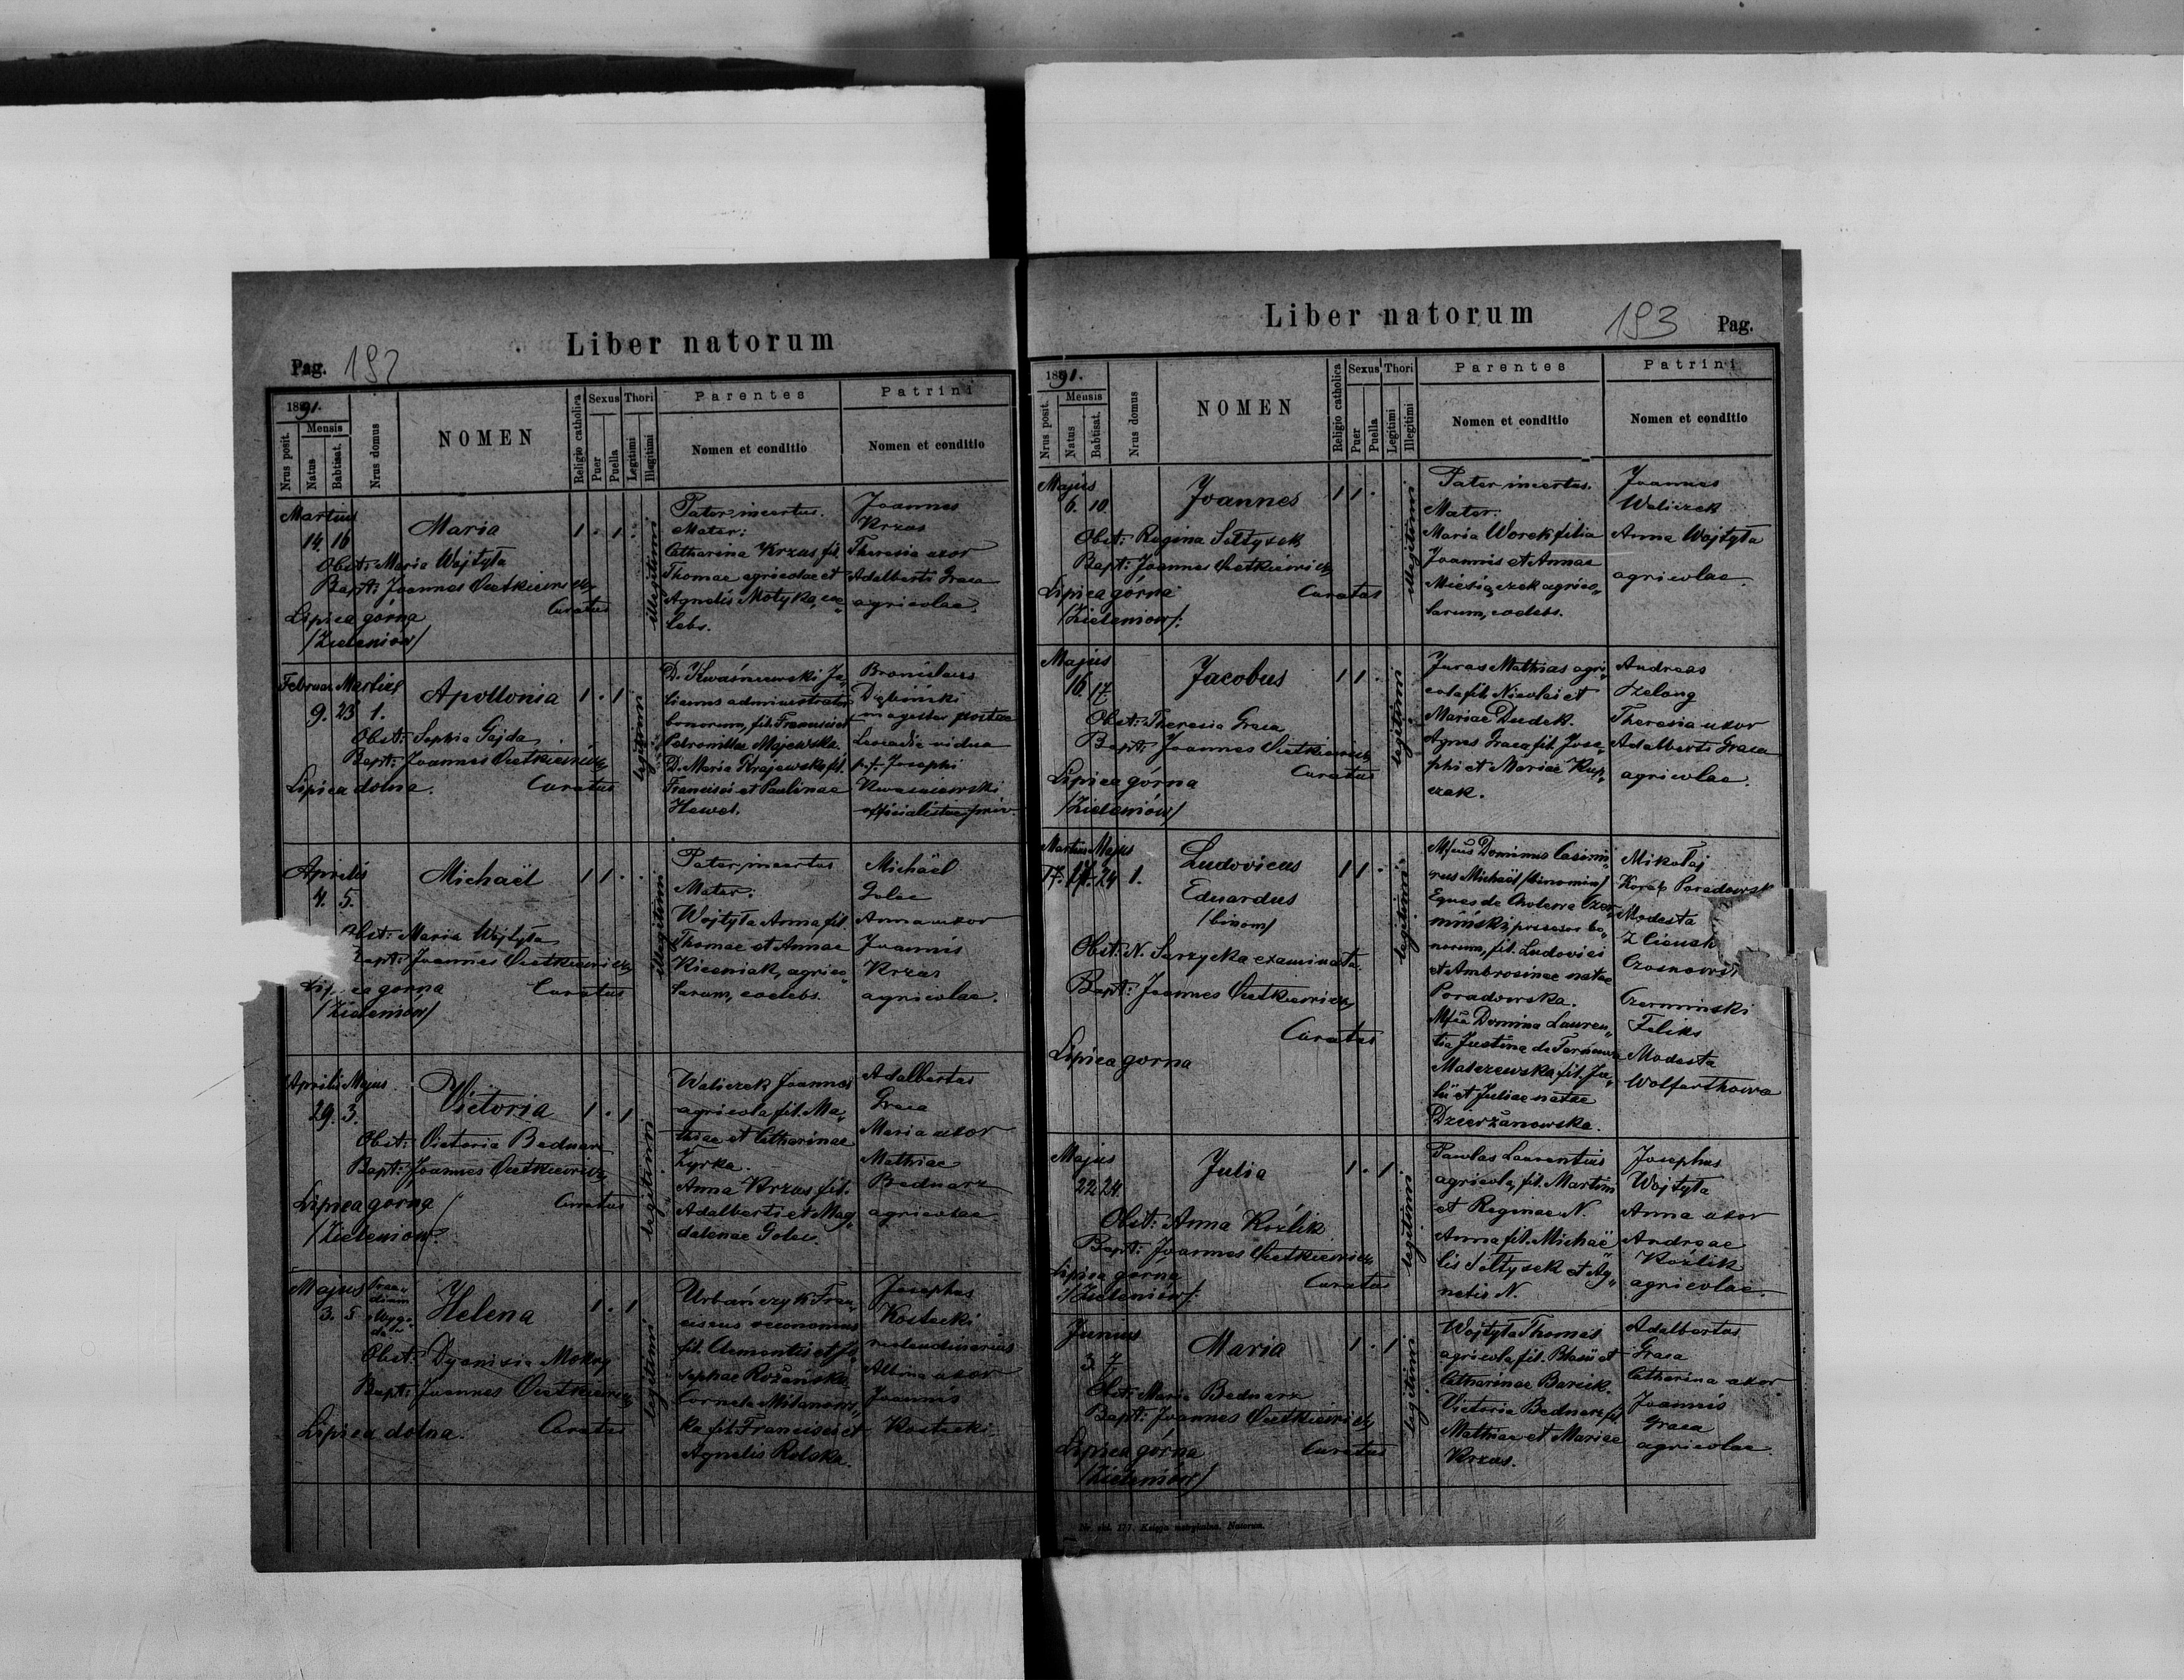 Liber natorum
Pag. 192
1891.
Nrus posit.
Mensis
Natus
Babtisat.
Nrus domus
NOMEN
Religio catholica
Sexus
Puer
Puella
Thori
Legitimi
Illegitimi
Parentes
Nomen et conditio
Patrini
Nomen et conditio
Martius
14. 16
Maria
1 . 1 .
illegitimi
Obst: Maria Wojtyła
Bapt: Joannes Pietkiewicz
Curatus
Lipica górna
/Zieleniów/
Pater incertus.
Mater:
Catharina Krzas fil.
Thomae agricolae et
Agnetis Motyka, coe„
lebs.
Joannes
Krzas
Theresia uxor
Adalberti Graca
agricolae.
Februar. Martius
9. 23 1.
Apollonia
1 . 1
legitimi
Obst: Sophia Gajda
Bapt: Joannes Pietkiewicz
Curatus
Lipica dolna.
D. Kwaśniewski Ju„
lianus administrator
bonorum, fil. Francisci et
Petronillae Majewska.
D. Maria Krajewska fil.
Francisci et Paulinae
Hawel.
Bronislaus
Dębiński
magister postae
Leocadia vidua
p. f. Josephi
Kwaśniewski
officialistae priv.
Aprilis
4. 5.
Michaël
1 1 . .
illegitimi
Obst: Maria Wojtyła
Bapt: Joannes Pietkiewicz
Curatus
Lipica górna
/Zieleniów/
Pater incertus
Mater:
Wojtyła Anna fil.
Thomae et Annae
Kieeniak, agrico„
larum, coelebs.
Michaël
Golec
Anna uxor
Joannis
Krzas
agricolae.
Aprilis Majus
29. 3.
Victoria
1 . 1
legitimi
Obst: Victoria Bednarz
Bapt: Joannes Pietkiewicz
Curatus
Lipica gorna
/Zieleniow/
Waliczek Joannes
agricola fil. Ma„
thiae et Catharinae
Zyrka.
Anna Krzas fil.
Adalberti et Mag„
dalenae Golec.
Adalbertus
Graca
Maria uxor
Mathiae
Bednarz
agricolae
Majus
3. 5
Prae„
dium
Wygo„
da
Helena
1 . 1
legitimi
Obst: Dyonizia Mokry
Bapt: Joannes Pietkiewicz
Curatus
Lipica dolna.
Urbańczyk Fran„
ciscus oeconomus
fil. Clementis et Jo„
sephae Rożańska
Cornela Milanows„
ka fil. Francisci et
Agnetis Rolska.
Josephus
Kostecki
molendinarius
Albina uxor
Joannis
Kostecki
Liber natorum
193 Pag.
1891.
Nrus posit.
Mensis
Natus
Babtisat.
Nrus domus
NOMEN
Religio catholica
Sexus
Puer
Puella
Thori
Legitimi
Illegitimi
Parentes
Nomen et conditio
Patrini
Nomen et conditio
Majus
6. 10.
Joannes
1 1 .
illegitimi
Obst: Regina Sołtysek
Bapt: Joannes Pietkiewicz
Curatus
Lipica górna
/Zieleniow/:
Pater incertus.
Mater:
Maria Worek filia
Joannis et Annae
Miesiączek agrico„
larum, coelebs.
Joannes
Waliczek
Anna Wojtyła
agricolae.
Majus
16. 17.
Jacobus
1 1 .
legitimi
Obst: Theresia Graca
Bapt: Joannes Pietkiewicz
Curatus
Lipica górna
/Zieleniów/
Juras Mathias agri„
cola fil. Nicolai et
Mariae Dudek.
Agnes Graca fil. Jose„
phi et Mariae Kup„
czak.
Andreas
Szelong
Theresia uxor
Adalberti Graca
agricolae.
Martius Majus
17. 24 1.
Ludovicus
Eduardus
/binom/
1 1 .
legitimi
Obst: N. Sarzycka examinata.
Bapt: Joannes Pietkiewicz
Curatus
Lipica gorna
Mfcus Dominus Casimi„
rus Michaël /binomin/
Eques de Cholewa Czer„
miński, possesor bo„
norum, fil. Ludovici
et Ambrosinae natae
Poradowska.
Mfca Domina Lauren„
tia Justina de
Malczewska fil. Ju„
lii et Juliae natae
Dzierżanowska.
Mikołaj
Korab Poradowsk
Modesta
Z
Czermiński
Feliks
Modesta
Wolfarthowa
Majus
22 24.
Julia
1 . 1.
legitimi
Obst: Anna Koźlik
Bapt: Joannes Pietkiewicz
Curatus
Lipica górna
/Zieleniów/:
Pawlas Laurentius
agricola, fil. Martini
et Reginae N.
Anna fil. Michaë„
lis Sołtysek et Ag„
netis N.
Josephus
Wojtyła
Anna uxor
Andreae
Koźlik
agricolae.
Junius
3. 7.
Maria
1 . 1
legitimi
Obst: Maria Bednarz
Bapt: Joannes Pietkiewicz
Curatus
Lipica górna
/Zieleniów/
Wojtyła Thomas
agricola fil. Blasii et
Catharinae Barcik.
Victoria Bednarz fil.
Mathiae et Mariae
Krzas.
Adalbertus
Graca
Catharina uxor
Joannis
Graca
agricolae.